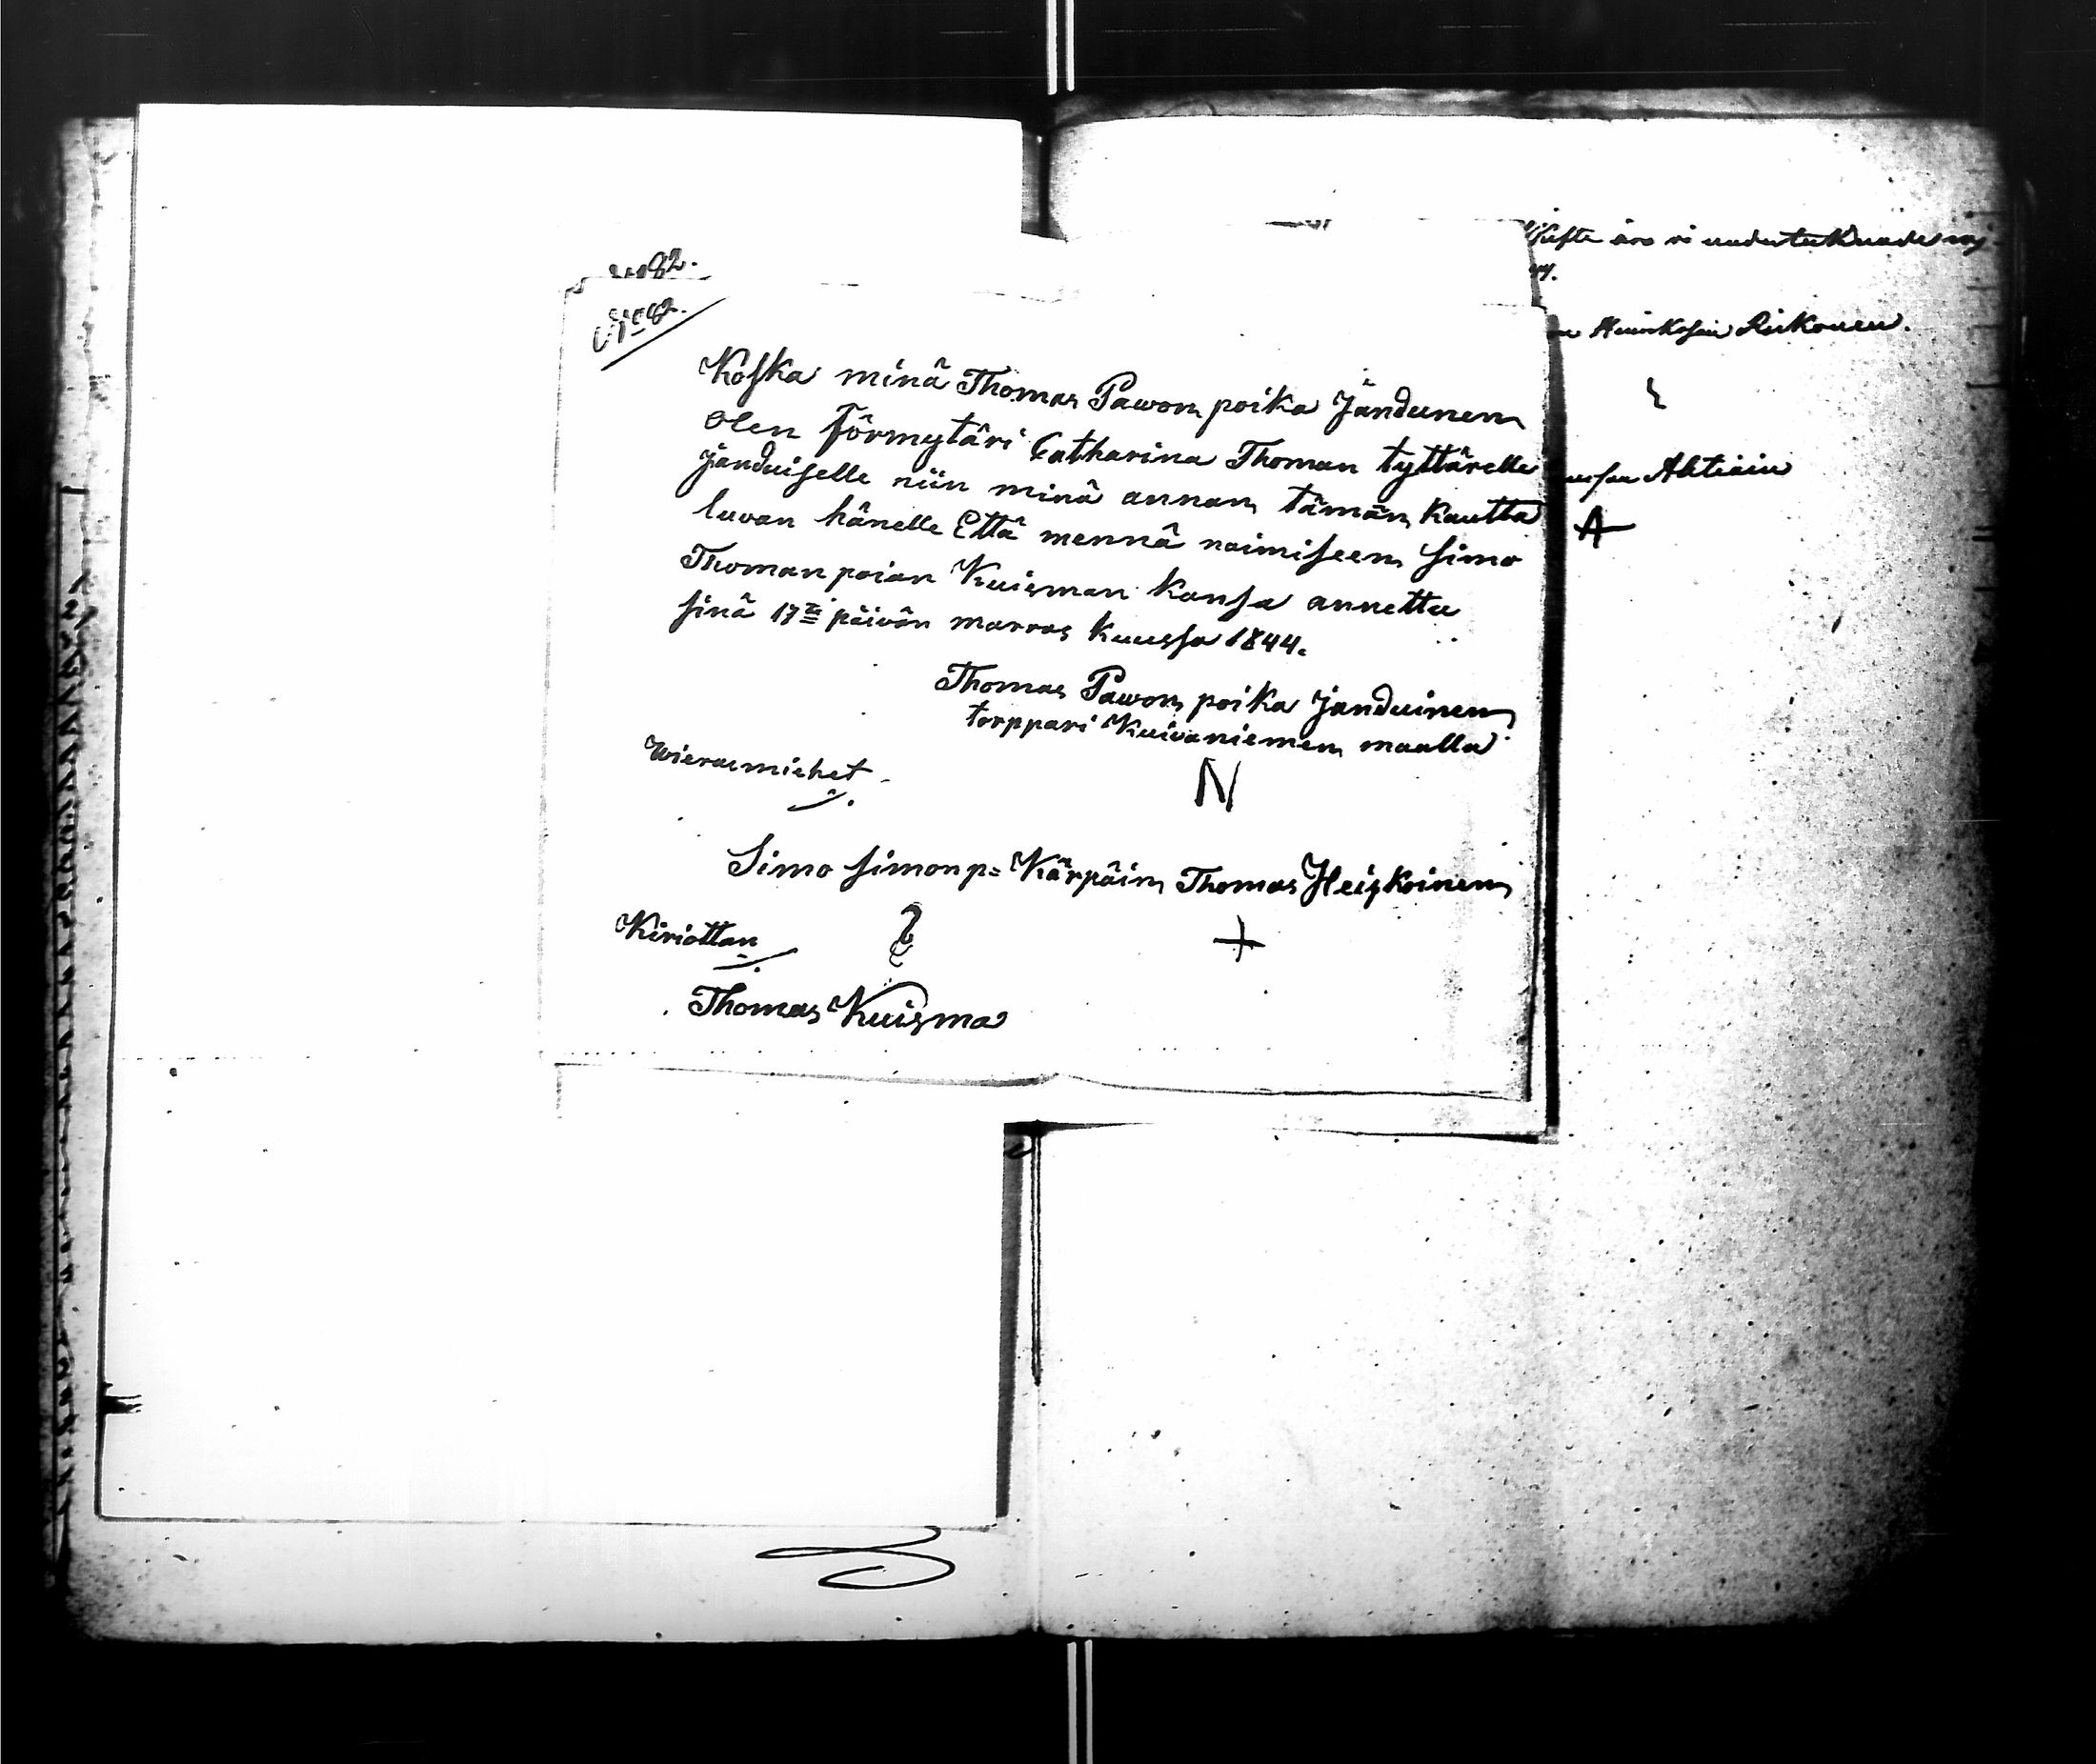 82.
Koska minä Thomas Pawon poika Jandunen
Olen Förmytäri Catharina Thoman tyttärelle
janduiselle niin minä annan tämän kautta
luvan hänelle Että mennä naimiseen Simo
Thoman poian Kuisman kansa annettu
sinä 17 päivän marras kuussa 1844.
Thomas Pawon poika Janduinen
torppari Kuivaniemen maalla
N
Wierasmiehet
Simo Simon p= Kärpäin Thomas Heiskoinen
+
Kiriottan
Thomas Kuisma
Riikonen.
Ahtiain
A